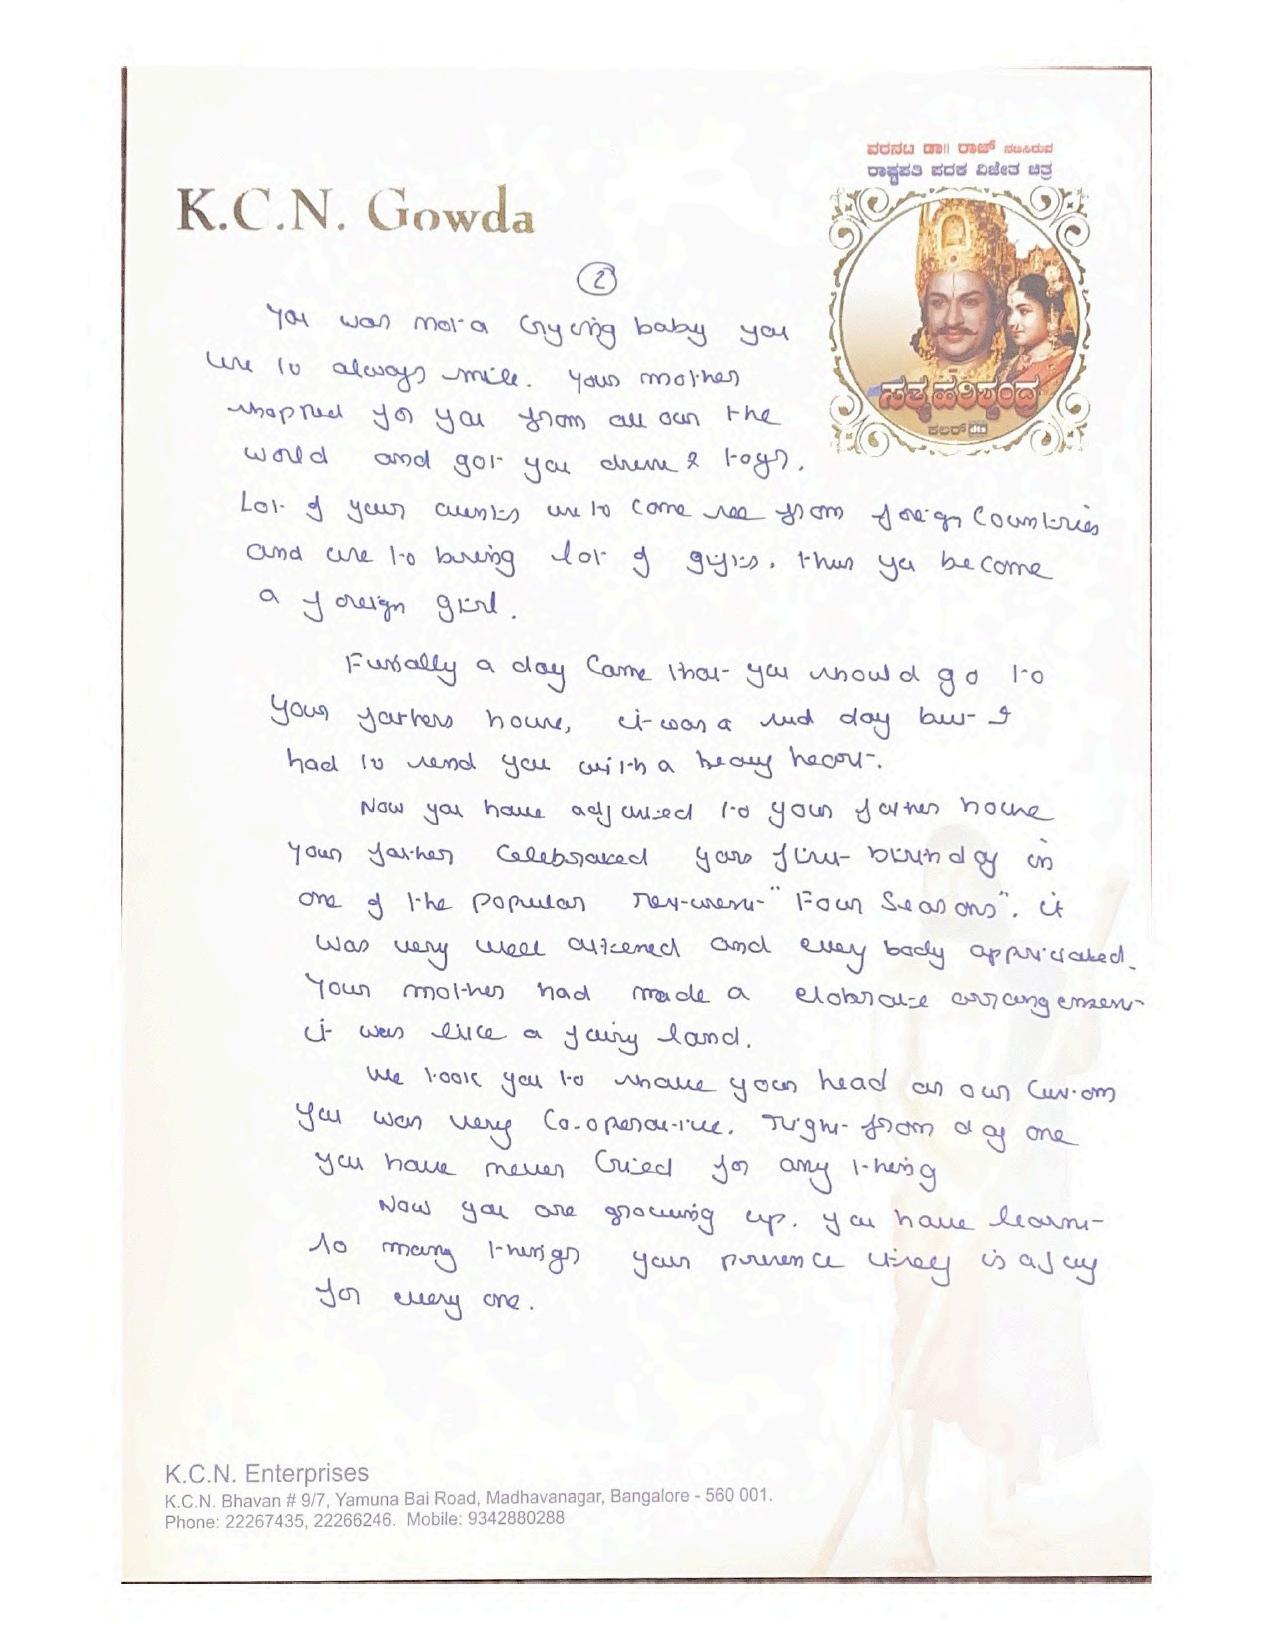 ವರನಟ ಡಾ|| ರಾಜ್ ನಟಿಸಿರುವ
ರಾಷ್ಟ್ರಪತಿ ಪದಕ ವಿಜೇತ ಚಿತ್ರ
K.C.N. Gowda
ಸತ್ಯಹರಿಶ್ಚಂದ್ರ
ಕಲರ್ dts
2
You was not a crying baby you
use to always smile. Your mother
shopped for you from all our the
world and got you dress & toys.
Lot of your aunties use to come see from foreign Countries
and use to bring lot of gifts. thus you become
a foreign girl.
Finally a day Came that you should go to
your fathers house, it was a sad day but I
had to send you with a heavy heart.
Now you have adjusted to your father house
your father Celebrated your first birthday in
one of the popular resturent "Four Seasons". it
was very well attened and every body appriciated.
Your mother had made a elobrate arrangement
it was like a fairy land.
We took you to shave your head as our Custom
you was very Co-operative. right from day one
you have never Cried for any thing
Now you are growing up. you have learnt
so many things your presence itself is a joy
for every one.
K.C.N. Enterprises
K.C.N. Bhavan # 9/7, Yamuna Bai Road, Madhavanagar, Bangalore - 560 001.
Phone: 22267435, 22266246. Mobile: 9342880288